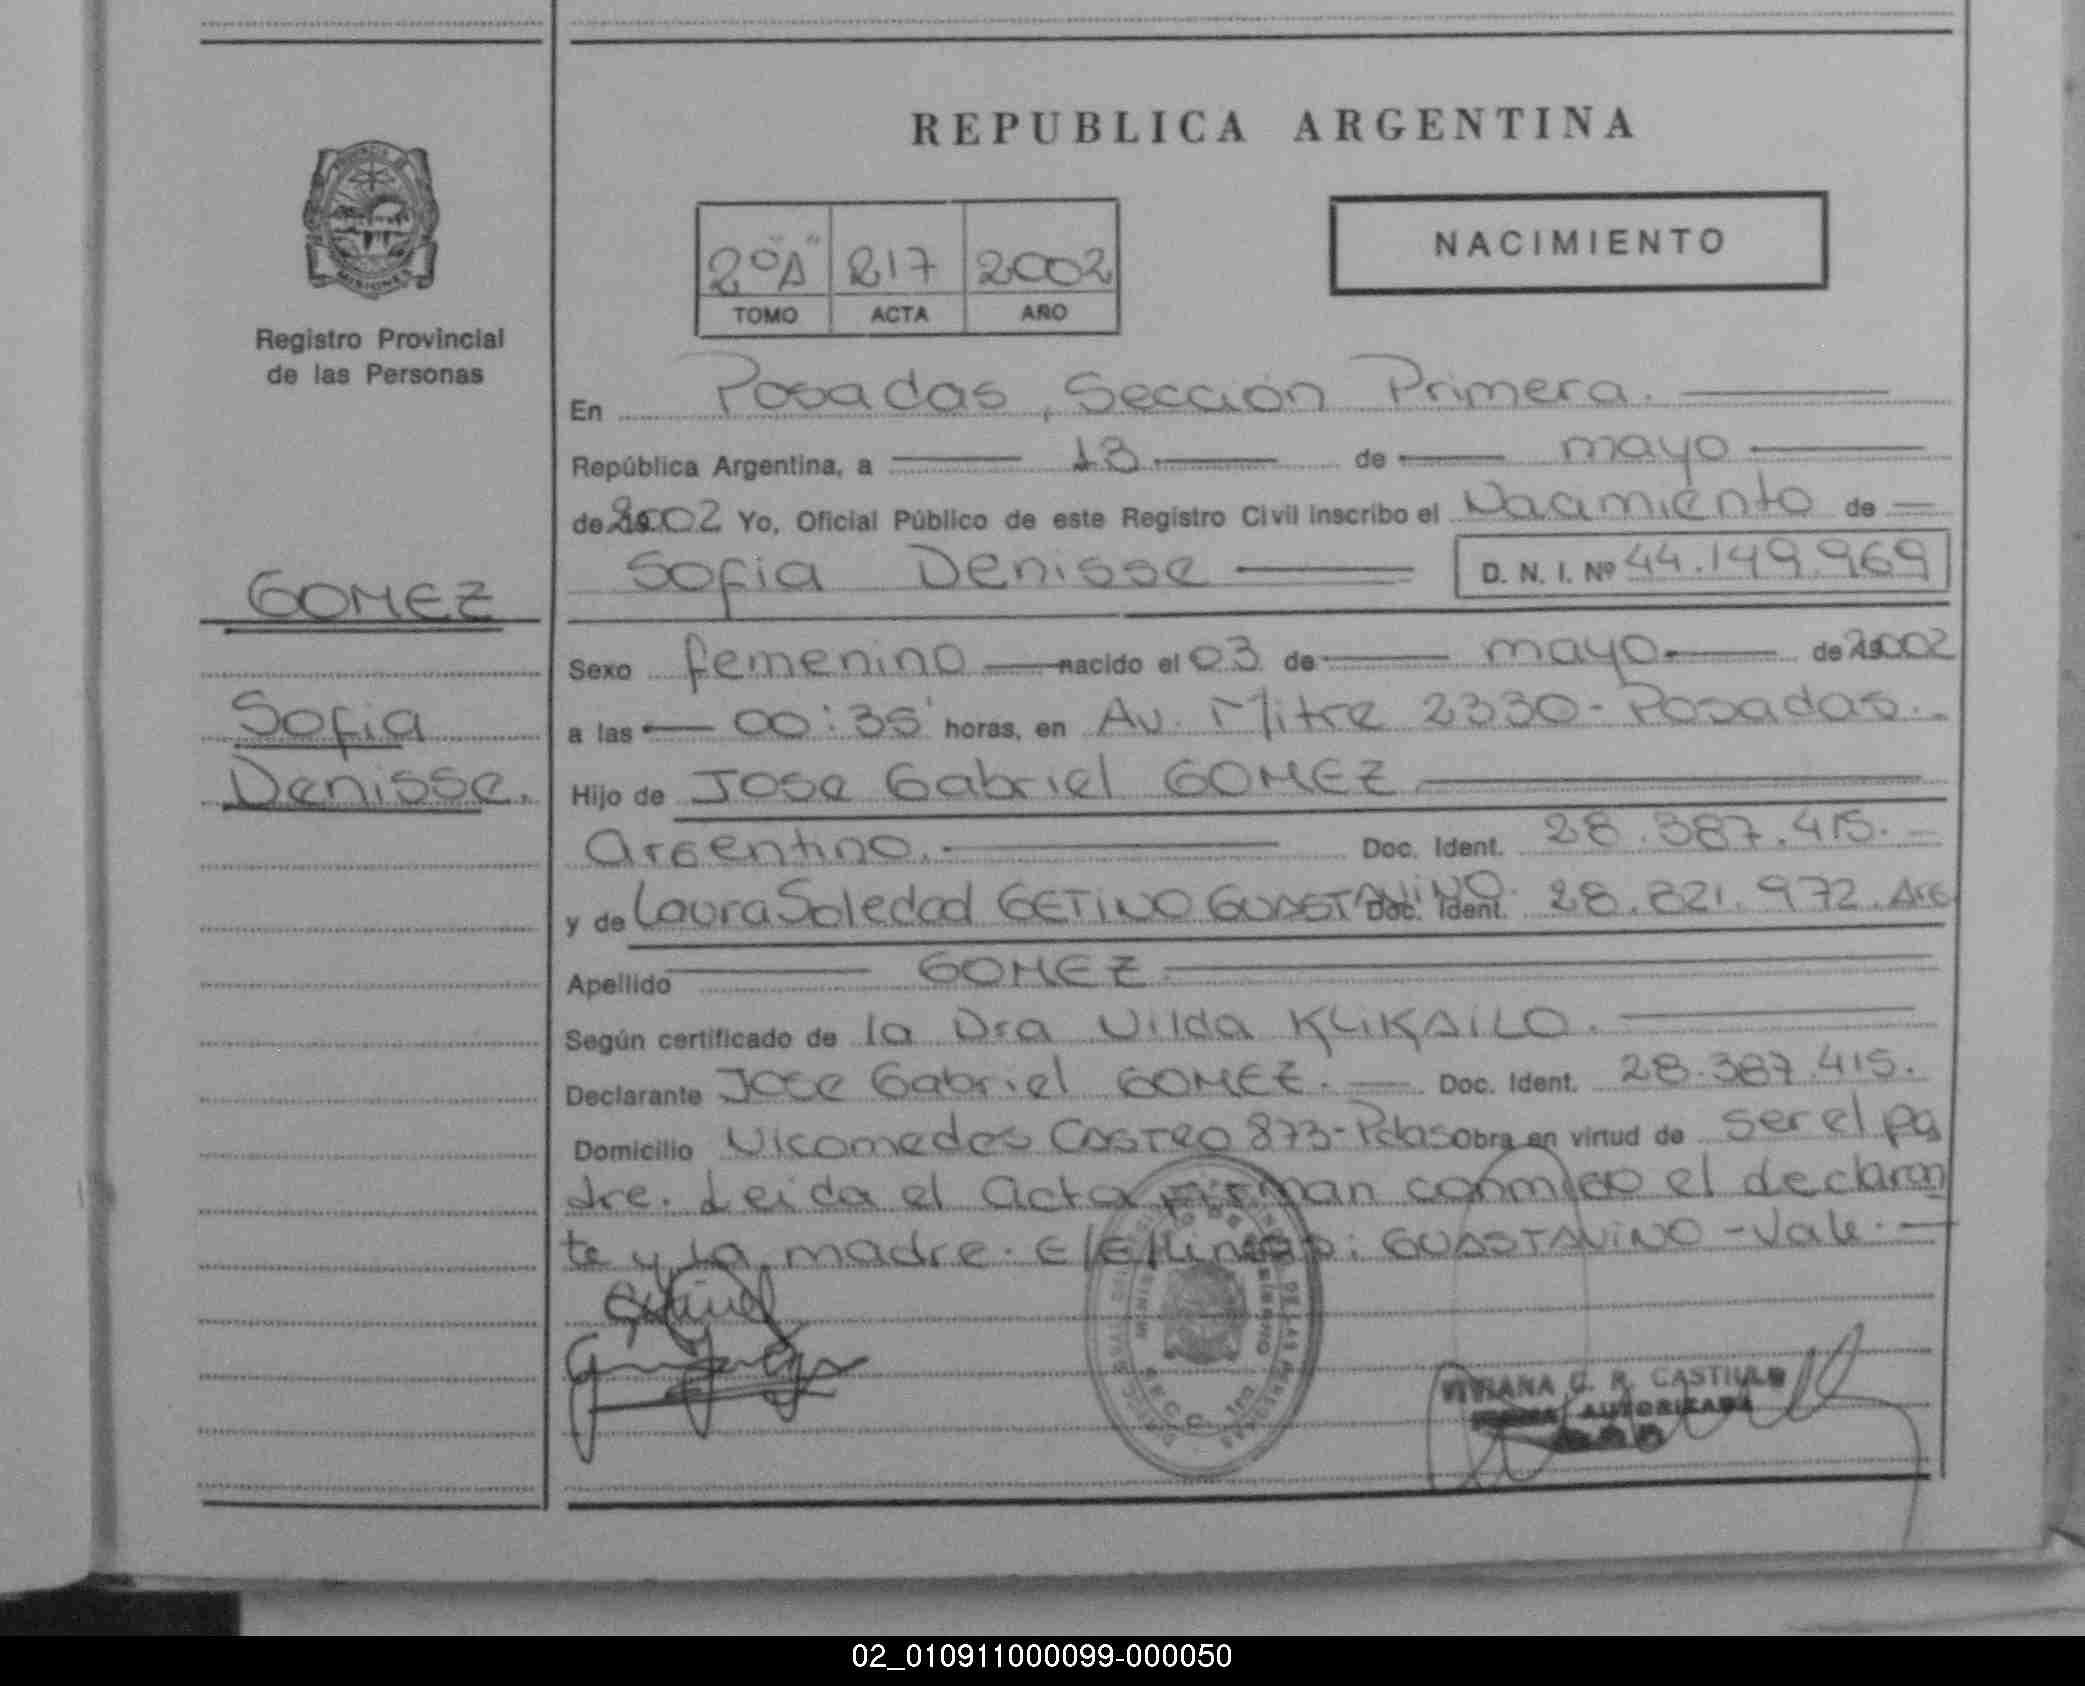 REPUBLICA ARGENTINA
NACIMIENTO
2º "A" 217 2002
TOMO ACTA AÑO
Registro Provincial
de las Personas
En Posadas, Sección Primera.
República Argentina, a 13 de mayo
de 2002 Yo, Oficial Público de este Registro Civil inscribo el Nacimiento de
Sofia Denisse D. N. I. Nº 44.149.969
GOMEZ
Sofia
Denisse.
Sexo femenino nacido el 03 de mayo de 2002
a las 00:35 horas, en Av. Mitre 2330 - Posadas.
Hijo de Jose Gabriel GOMEZ
Argentino. Doc. Ident. 28.387.415.
y de Laura Soledad GETINO GUASTAVINO. Doc. Ident. 28.821.972. Arg
Apellido GOMEZ
Según certificado de la Dra Nilda KLIKAILO.
Declarante Jose Gabriel GOMEZ. Doc. Ident. 28.387.415.
Domicilio Nicomedes CASTRO 873 - Pdas Obra en virtud de ser el pa
dre. Leida el acta firman conmigo el declaran
te y la madre. E/Elineas: GUASTAVINO - Vale.
VIVIANA C. R. CASTILLO
FIRMA AUTORIZADA
02_010911000099-000050